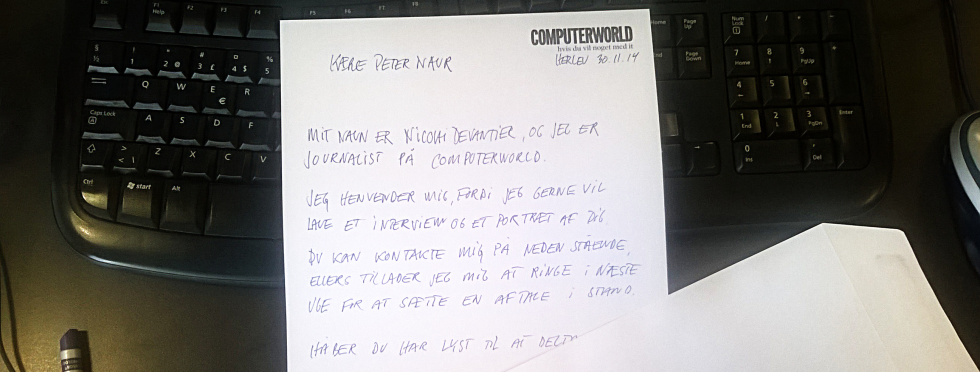 COMPUTERWORLD
hvis du vil noget med it
HERLEV 30.11.14
KÆRE PETER NAUR
MIT NAVN ER NICOLAI DEVANTIER, OG JEG ER
JOURNALIST PÅ COMPUTERWORLD.
JEG HENVENDER MIG, FORDI JEG GERNE VIL
LAVE ET INTERVIEW OG ET PORTRÆT AF DIG.
DU KAN KONTAKTE MIG PÅ NEDENSTÅENDE,
ELLERS TILLADER JEG MIG AT RINGE I NÆSTE
UGE FOR AT SÆTTE EN AFTALE I STAND.
HÅBER DU HAR LYST TIL AT
F1
Help
F2
F3
F4
F5
F6
F7
F8
§ ½
! 1
" 2 @
# 3 £
¤ 4 $
% 5
Q W E €
Caps Lock
A S D F
> < \
Z X C V
Ctrl
start
Alt
Home
Page Up
Page Down
Num Lock
/
*
-
7 Home
8
9 PgUp
4
5
6
+
1 End
2
3 PgDn
Enter
0 Ins
, Del